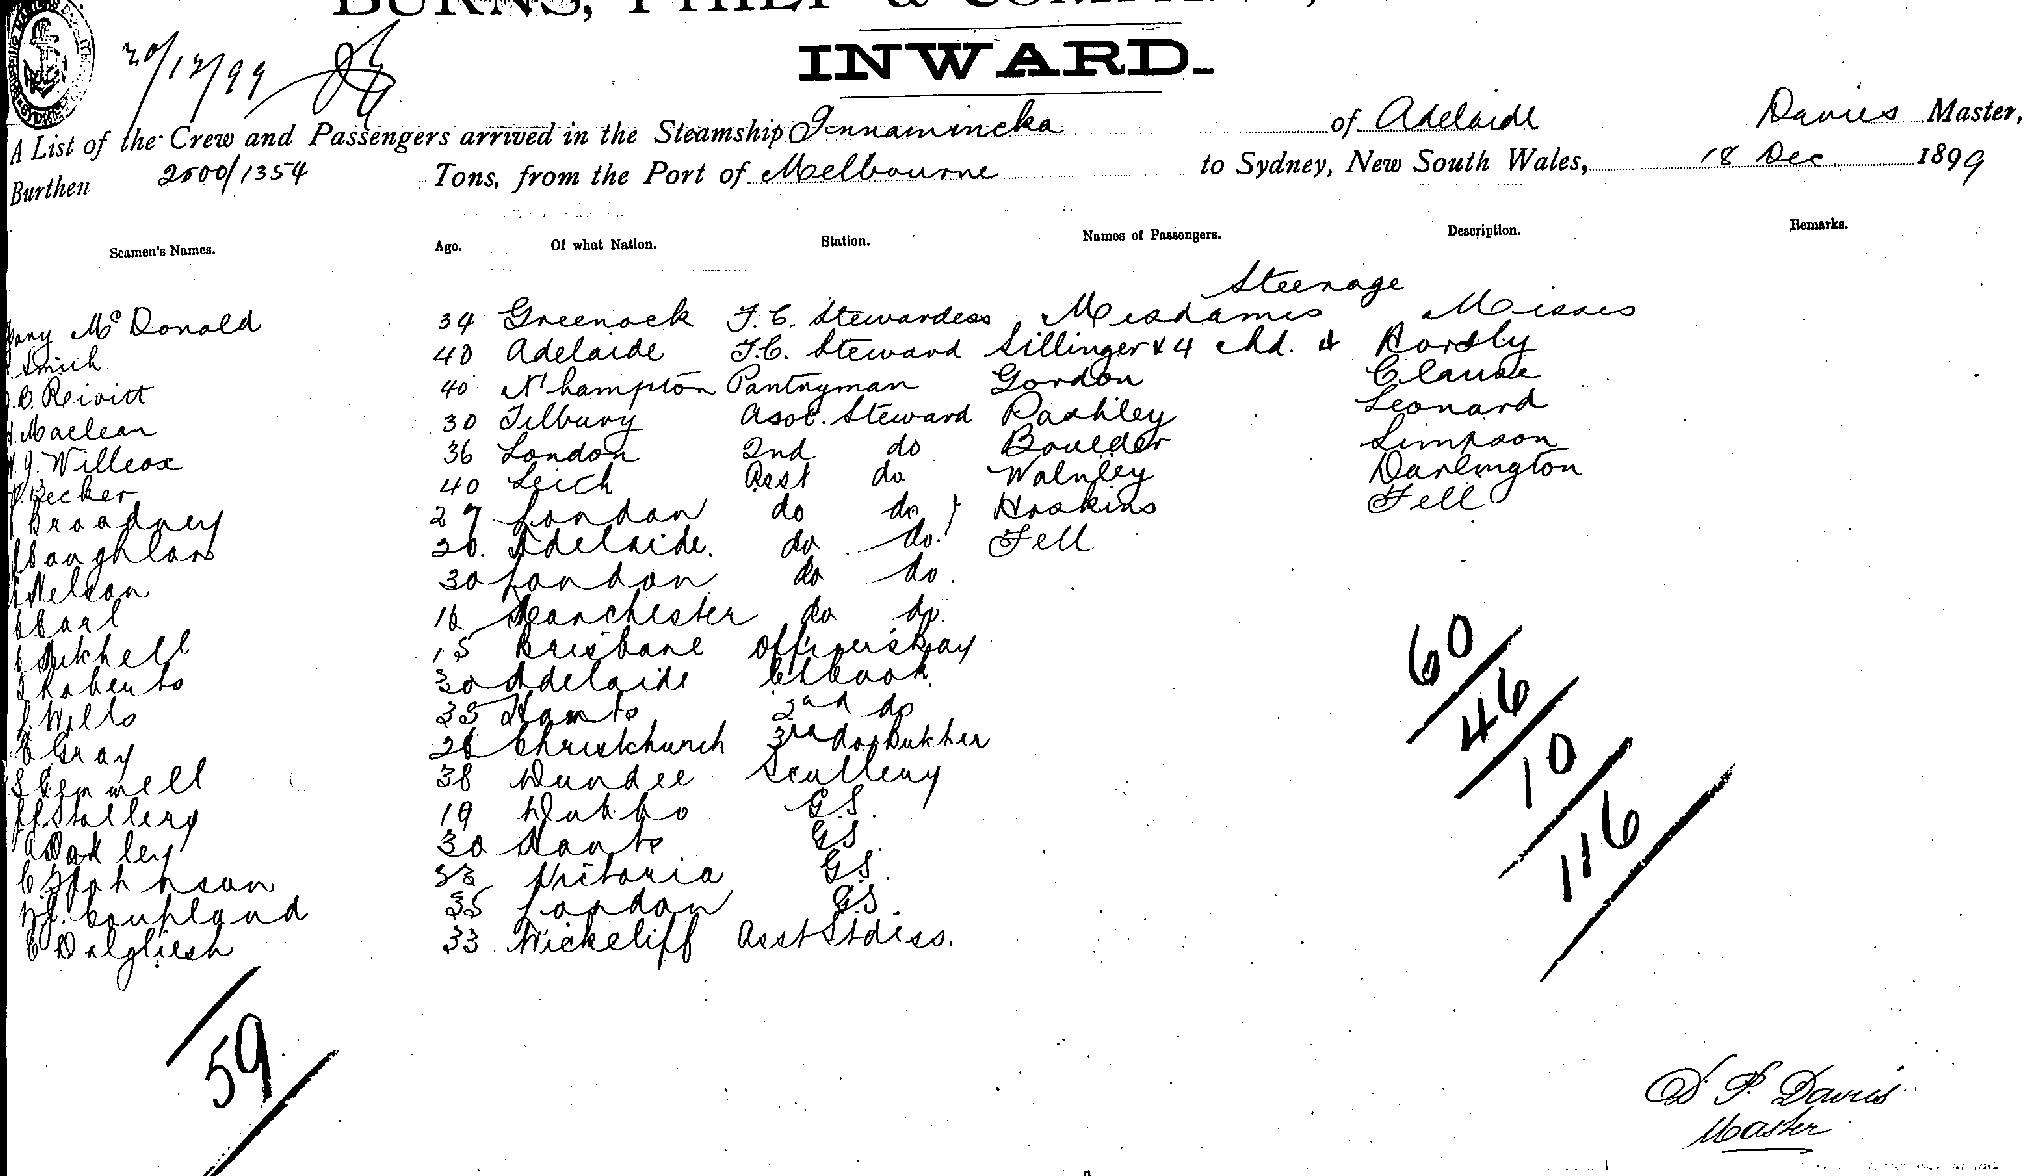 BURNS, PHILP & COMPANY,
INWARD.
20/12/99
A List of the Crew and Passengers arrived in the Steamship Innamincka of Adelaide Davies Master,
Burthen 2500/1354 Tons, from the Port of Melbourne to Sydney, New South Wales, 18 Dec 1899
Seamen's Names. Age. Of what Nation. Station. Names of Passengers. Description. Remarks.
Steerage
Mc Donald 34 Greenock F.C. Stewardess Mesdames Misses
Smith 40 Adelaide F.C. Steward Sillinger & 4 chd. &
Reivitt 40 N'hampton Pantryman Gordon Clause
Maclean 30 Tilbury Asst. Steward Pashley Leonard
Willcox 36 London 2nd do Boulder Simpson
Becker 40 Leith Asst do Walnley Darlington
Broadney 27 London do do Hoskins Fell
Coughlan 26. Adelaide. do do. Fell
Nelson 30 London do do.
Earl 16 Manchester do do.
Mitchell 15 Brisbane Officers Boy
Roberts 30 Adelaide Ch Cook.
Wills 35 Hants 2nd do
Gray 26 Christchurch 3rd do & Butcher
Gemmell 38 Dundee Scullery
Stallery 19 Dubbo G.S.
Oakley 30 Hants G.S.
C. Johnson 33 Victoria G.S.
Coupland 35 London G.S.
C Dalgliesh 33 Wickeliff Asst Stdess.
60
46
10
116
59
D. P. Davies
Master